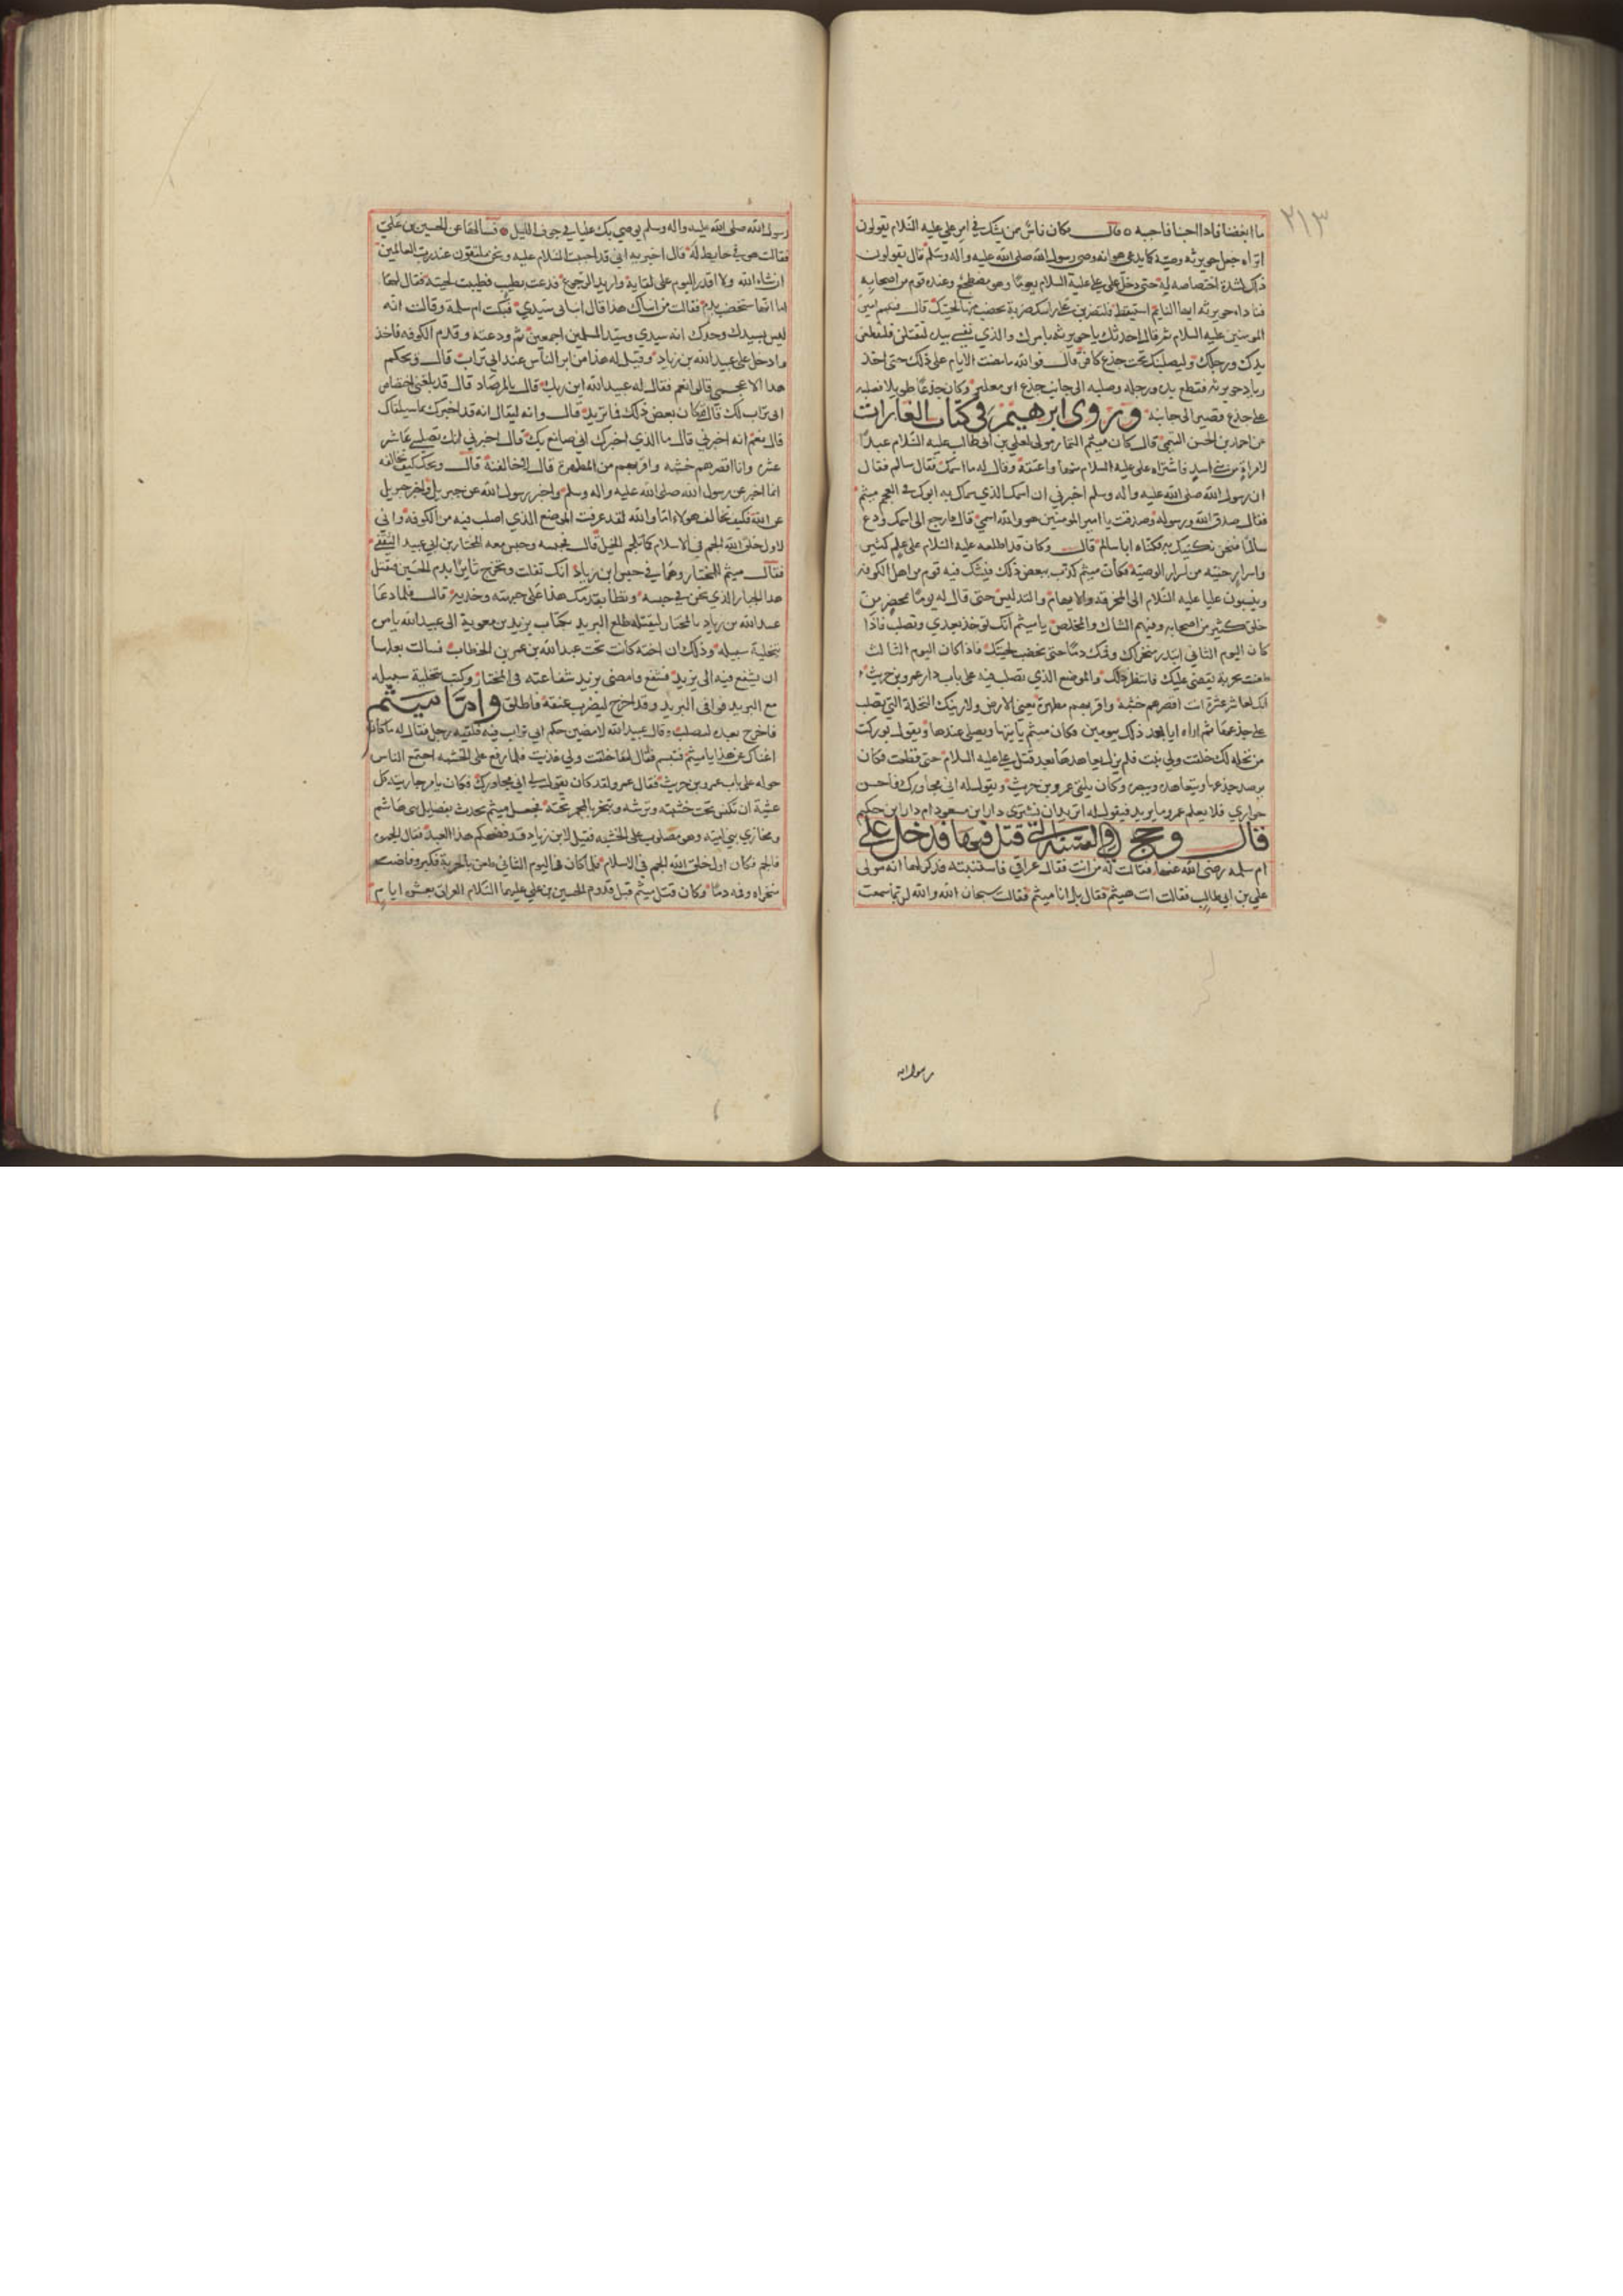 ٢١٣
ما ابغضنا فاذا احبنا فاحبه ه قال فكان ناس ممن يشك في امر علي عليه السلام يقولون
اتراه جعل جويرية وصيه كما يدعي هو انه وصي رسول الله صلى الله عليه واله وسلم قال يقولون
ذلك لشدة اختصاصه له حتى دخل على علي عليه السلام يوما وهو مضطجع وعنده قوم من اصحابه
فناداه جويرية ايها النايم استيقظ فلتضربن على راسك ضربة تخضب منها لحيتك قال فتبسم امير
المومنين عليه السلام ثم قال احدثك يا جويرية بامرك والذي نفسي بيده لتعتلن فليقطعن
يدك ورجلك وليصلبنك تحت جذع كافر قال فوالله ما مضت الايام على ذلك حتى اخذ
زياد جويرية فقطع يده ورجله وصلبه الى جانب جذع ابن معكبر وكان جذعا طويلا فصلبه
على جذع قصير الى جانبه وروى ابرهيم في كتاب الغارات
عن احمد بن الحسن الميثمي قال كان ميثم التمار مولى لعلي بن ابي طالب عليه السلام عبدا
لامراة من بني اسد فاشتراه علي عليه السلام منها واعتقه وقال له ما اسمك فقال سالم فقال
ان رسول الله صلى الله عليه واله وسلم اخبرني ان اسمك الذي سماك به ابوك في العجم ميثم
فقال صدق الله ورسوله وصدقت يا امير المومنين هو والله اسمي قال فارجع الى اسمك ودع
سالما فنحن نكنيك به فكناه ابا سالم قال وكان قد اطلعه عليه السلام على علم كثير
واسرار خفية من اسرار الوصية فكان ميثم يحدث ببعض ذلك فيشك فيه قوم من اهل الكوفة
وينسبون عليا عليه السلام الى المخرقة والايهام والتدليس حتى قال له يوما بمحضر من
خلق كثير من اصحابه وفيهم الشاك والمخلص يا ميثم انك توخذ بعدي وتصلب فاذا
كان اليوم الثاني ابتدر منخراك وفمك دما حتى تخضب لحيتك فاذا كان اليوم الثالث
طعنت بحربة يقضى عليك فانتظر ذلك والموضع الذي تصلب فيه على باب دار عمرو بن حريث
انك لعاشر عشرة انت اقصرهم خشبة واقربهم من المطهرة يعني الارض ولارينك النخلة التي تصلب
على جذعها ثم اراه اياها بعد ذلك بيومين فكان ميثم ياتيها ويصلي عندها ويقول بوركت
من نخلة لك خلقت ولي نبت فلم يزل يتعاهدها بعد قتل علي عليه السلام حتى قطعت فكان
يرصد جذعها ويتعاهده ويبصره وكان يلقى عمرو بن حريث ويقول له اني مجاورك فاحسن
جواري فلا يعلم عمرو ما يريد فيقول له اتريد ان تشتري دار ابن مسعود ام دار ابن حكيم
قال وحج في السنة التي قتل فيها فدخل على
ام سلمة رضي الله عنها فقالت له من انت فقال عراقي فاستنسبته فذكر لها انه مولى
علي بن ابي طالب فقالت انت هيثم فقال بل انا ميثم فقالت سبحان الله والله لربما سمعت
رسول الله
رسول الله صلى الله عليه واله وسلم يوصي بك عليا في جوف الليل فسالها عن الحسين بن علي
فقالت هو في حايط له قال اخبريه اني قد احببت السلام عليه ونحن ملتقون عند رب العالمين
ان شاء الله ولا اقدر اليوم على لقايه واريد الرجوع فدعت بطيب فطيبت لحيته فقال لها
اما انها ستخضب بدم فقالت من انباك هذا قال انباني سيدي فبكت ام سلمة وقالت انه
ليس بسيدك وحدك انه سيدي وسيد المسلمين اجمعين ثم ودعته وقدم الكوفه فاخذ
وادخل على عبيد الله بن زياد وقيل له هذا من ابر الناس عند ابي تراب قال ويحكم
هذا الاعجمي قالوا نعم فقال له عبيد الله اين ربك قال بالمرصاد قال قد بلغني اختصاص
ابي تراب لك قال قد كان بعض ذلك فما تريد قال وانه ليقال انه قد اخبرك بما سيلقاك
قال نعم انه اخبرني قال ما الذي اخبرك اني صانع بك قال اخبرني انك تصلبني عاشر
عشرة وانا اقصرهم خشبه واقربهم من المطهرة قال لاخالفنه قال ويحك كيف تخالفه
انما اخبر عن رسول الله صلى الله عليه واله وسلم واخبر رسول الله عن جبريل واخبر جبريل
عن الله فكيف تخالف هولاء اما والله لقد عرفت الموضع الذي اصلب فيه من الكوفه واني
لاول خلق الله الجم في الاسلام كما تلجم الخيل قال فحبسه وحبس معه المختار بن ابي عبيد الثقفي
فقال ميثم للمختار وهما في حبس ابن زياد انك تفلت وتخرج ثايرا بدم الحسين فتقتل
هذا الجبار الذي نحن في حبسه وتطا بقدمك هذا على جبهته وخديه قال فلما دعا
عبيد الله بن زياد بالمختار ليقتله طلع البريد بكتاب يزيد بن معوية الى عبيد الله يامره
بتخلية سبيله وذلك ان اخته كانت تحت عبد الله بن عمر بن الخطاب فسالت بعلها
ان يشفع فيه الى يزيد فشفع فامضى يزيد شفاعته في المختار وكتب بتخلية سبيله
مع البريد فوافى البريد وقد اخرج ليضرب عنقه فاطلق واما ميثم
فاخرج بعده ليصلب وقال عبيد الله لامضين حكم ابي تراب فيه فلقيه رجل فقال له ما كان
اغناك عن هذا يا ميثم فتبسم فقال لها خلقت ولي غذيت فلما رفع على الخشبه اجتمع الناس
حوله على باب عمرو بن حريث فقال عمرو لقد كان يقول لي اني مجاورك فكان يامر جاريته كل
عشية ان تكنس تحت خشبته وترشه وتبخر بالمجمر تحته فجعل ميثم يحدث بفضايل بني هاشم
ومخازي بني امية وهو مصلوب على الخشبه فقيل لابن زياد قد فضحكم هذا العبد فقال الجموه
فالجم فكان اول خلق الله الجم في الاسلام فلما كان في اليوم الثاني طعن بالحربة فكبر وفاضت
منخراه وفمه دما وكان قتل ميثم قبل قدوم الحسين بن علي عليهما السلام العراق بعشرة ايام